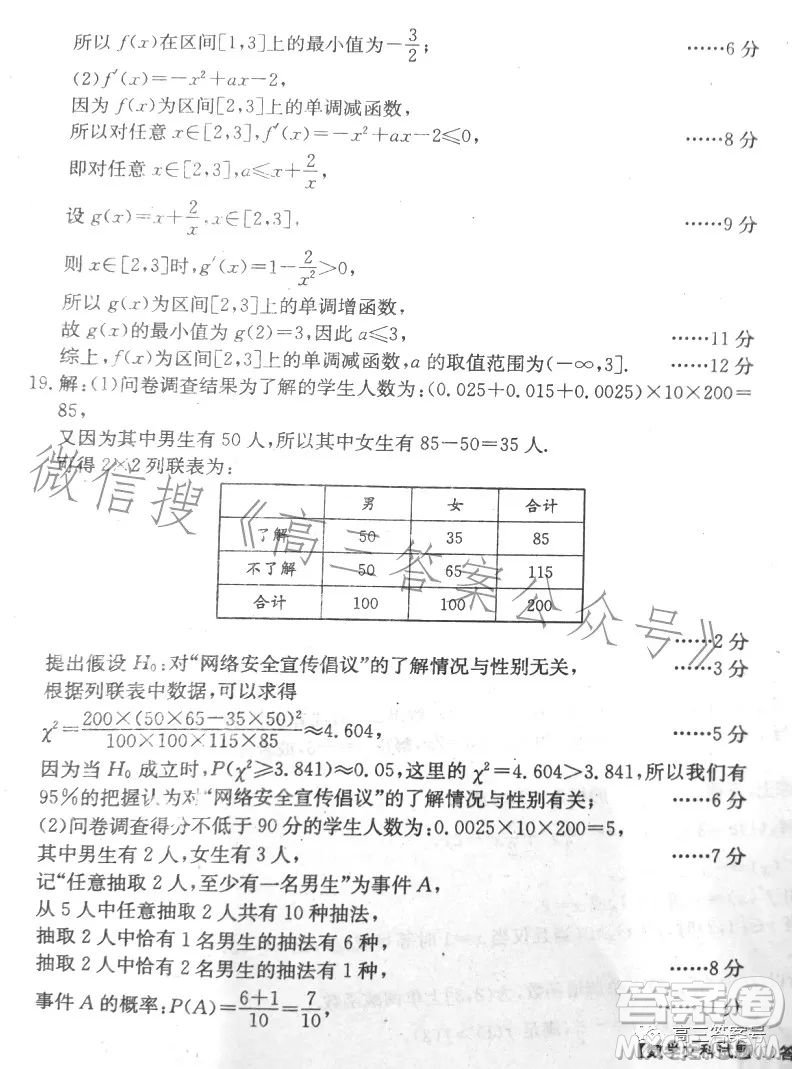 所以 f(x)在区间[1,3]上的最小值为-3/2; ……6 分
(2)f′(x)=-x²+ax-2,
因为 f(x)为区间[2,3]上的单调减函数,
所以对任意 x∈[2,3],f′(x)=-x²+ax-2≤0, ……8 分
即对任意 x∈[2,3],a≤x+2/x,
设 g(x)=x+2/x,x∈[2,3], ……9 分
则 x∈[2,3]时,g′(x)=1-2/x²>0,
所以 g(x)为区间[2,3]上的单调增函数,
故 g(x)的最小值为 g(2)=3,因此 a≤3, ……11 分
综上,f(x)为区间[2,3]上的单调减函数,a 的取值范围为(-∞,3]. ……12 分
19. 解:(1)问卷调查结果为了解的学生人数为:(0.025+0.015+0.0025)×10×200=
85,
又因为其中男生有 50 人,所以其中女生有 85-50=35 人.
可得 2×2 列联表为:
男 女 合计
了解 50 35 85
不了解 50 65 115
合计 100 100 200
……2 分
提出假设 H₀:对“网络安全宣传倡议”的了解情况与性别无关, ……3 分
根据列联表中数据,可以求得
χ²=200×(50×65-35×50)²/100×100×115×85≈4.604, ……5 分
因为当 H₀ 成立时,P(χ²≥3.841)≈0.05,这里的 χ²=4.604>3.841,所以我们有
95%的把握认为对“网络安全宣传倡议”的了解情况与性别有关; ……6 分
(2)问卷调查得分不低于 90 分的学生人数为:0.0025×10×200=5,
其中男生有 2 人,女生有 3 人, ……7 分
记“任意抽取 2 人,至少有一名男生”为事件 A,
从 5 人中任意抽取 2 人共有 10 种抽法,
抽取 2 人中恰有 1 名男生的抽法有 6 种,
抽取 2 人中恰有 2 名男生的抽法有 1 种, ……8 分
事件 A 的概率:P(A)=6+1/10=7/10, ……11 分
微信搜《高三答案公众号》
高三答案号
【数学文科试题 答